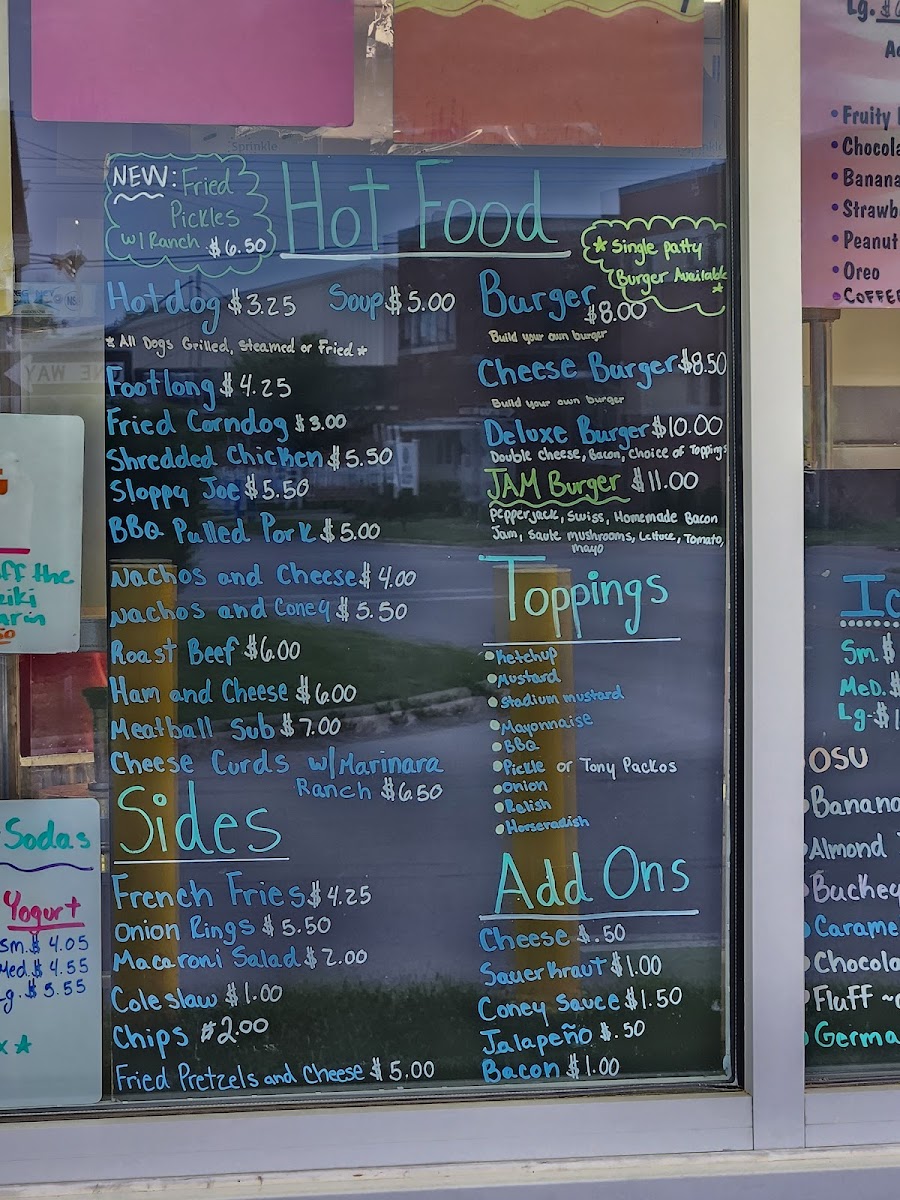 Sprinkle
NEW: Fried
Pickles
w/ Ranch $6.50
Hot Food
* Single patty
Burger Available
*
Hotdog $3.25
Soup $5.00
* All Dogs Grilled, Steamed or Fried *
Footlong $4.25
Fried Corndog $3.00
Shredded Chicken $5.50
Sloppy Joe $5.50
BBQ Pulled Pork $5.00
Nachos and Cheese $4.00
Nachos and Coney $5.50
Roast Beef $6.00
Ham and Cheese $6.00
Meatball Sub $7.00
Cheese Curds w/Marinara
Ranch $6.50
Sides
French Fries $4.25
Onion Rings $5.50
Macaroni Salad $2.00
Coleslaw $1.00
Chips $2.00
Fried Pretzels and Cheese $5.00
Burger $8.00
Build your own burger
Cheese Burger $8.50
Build your own burger
Deluxe Burger $10.00
Double cheese, Bacon, Choice of Toppings
JAM Burger $11.00
Pepperjack, Swiss, Homemade Bacon
Jam, Saute mushrooms, Lettuce, Tomato,
mayo
Toppings
Ketchup
Mustard
Stadium mustard
Mayonnaise
BBQ
Pickle or Tony Packos
Onion
Relish
Horseradish
Add Ons
Cheese $.50
Sauerkraut $1.00
Coney Sauce $1.50
Jalapeño $.50
Bacon $1.00
ff the
eiki
arin
Sodas
Yogurt
Sm. $4.05
Med. $4.55
g. $5.55
Lg. $
• Fruity
• Chocola
• Banana
• Strawb
• Peanut
• Oreo
• COFFEE
Ic
Sm. $
Med. $
Lg. $1
OSU
Banana
Almond
Buckey
Carame
Chocola
Fluff ~
Germa